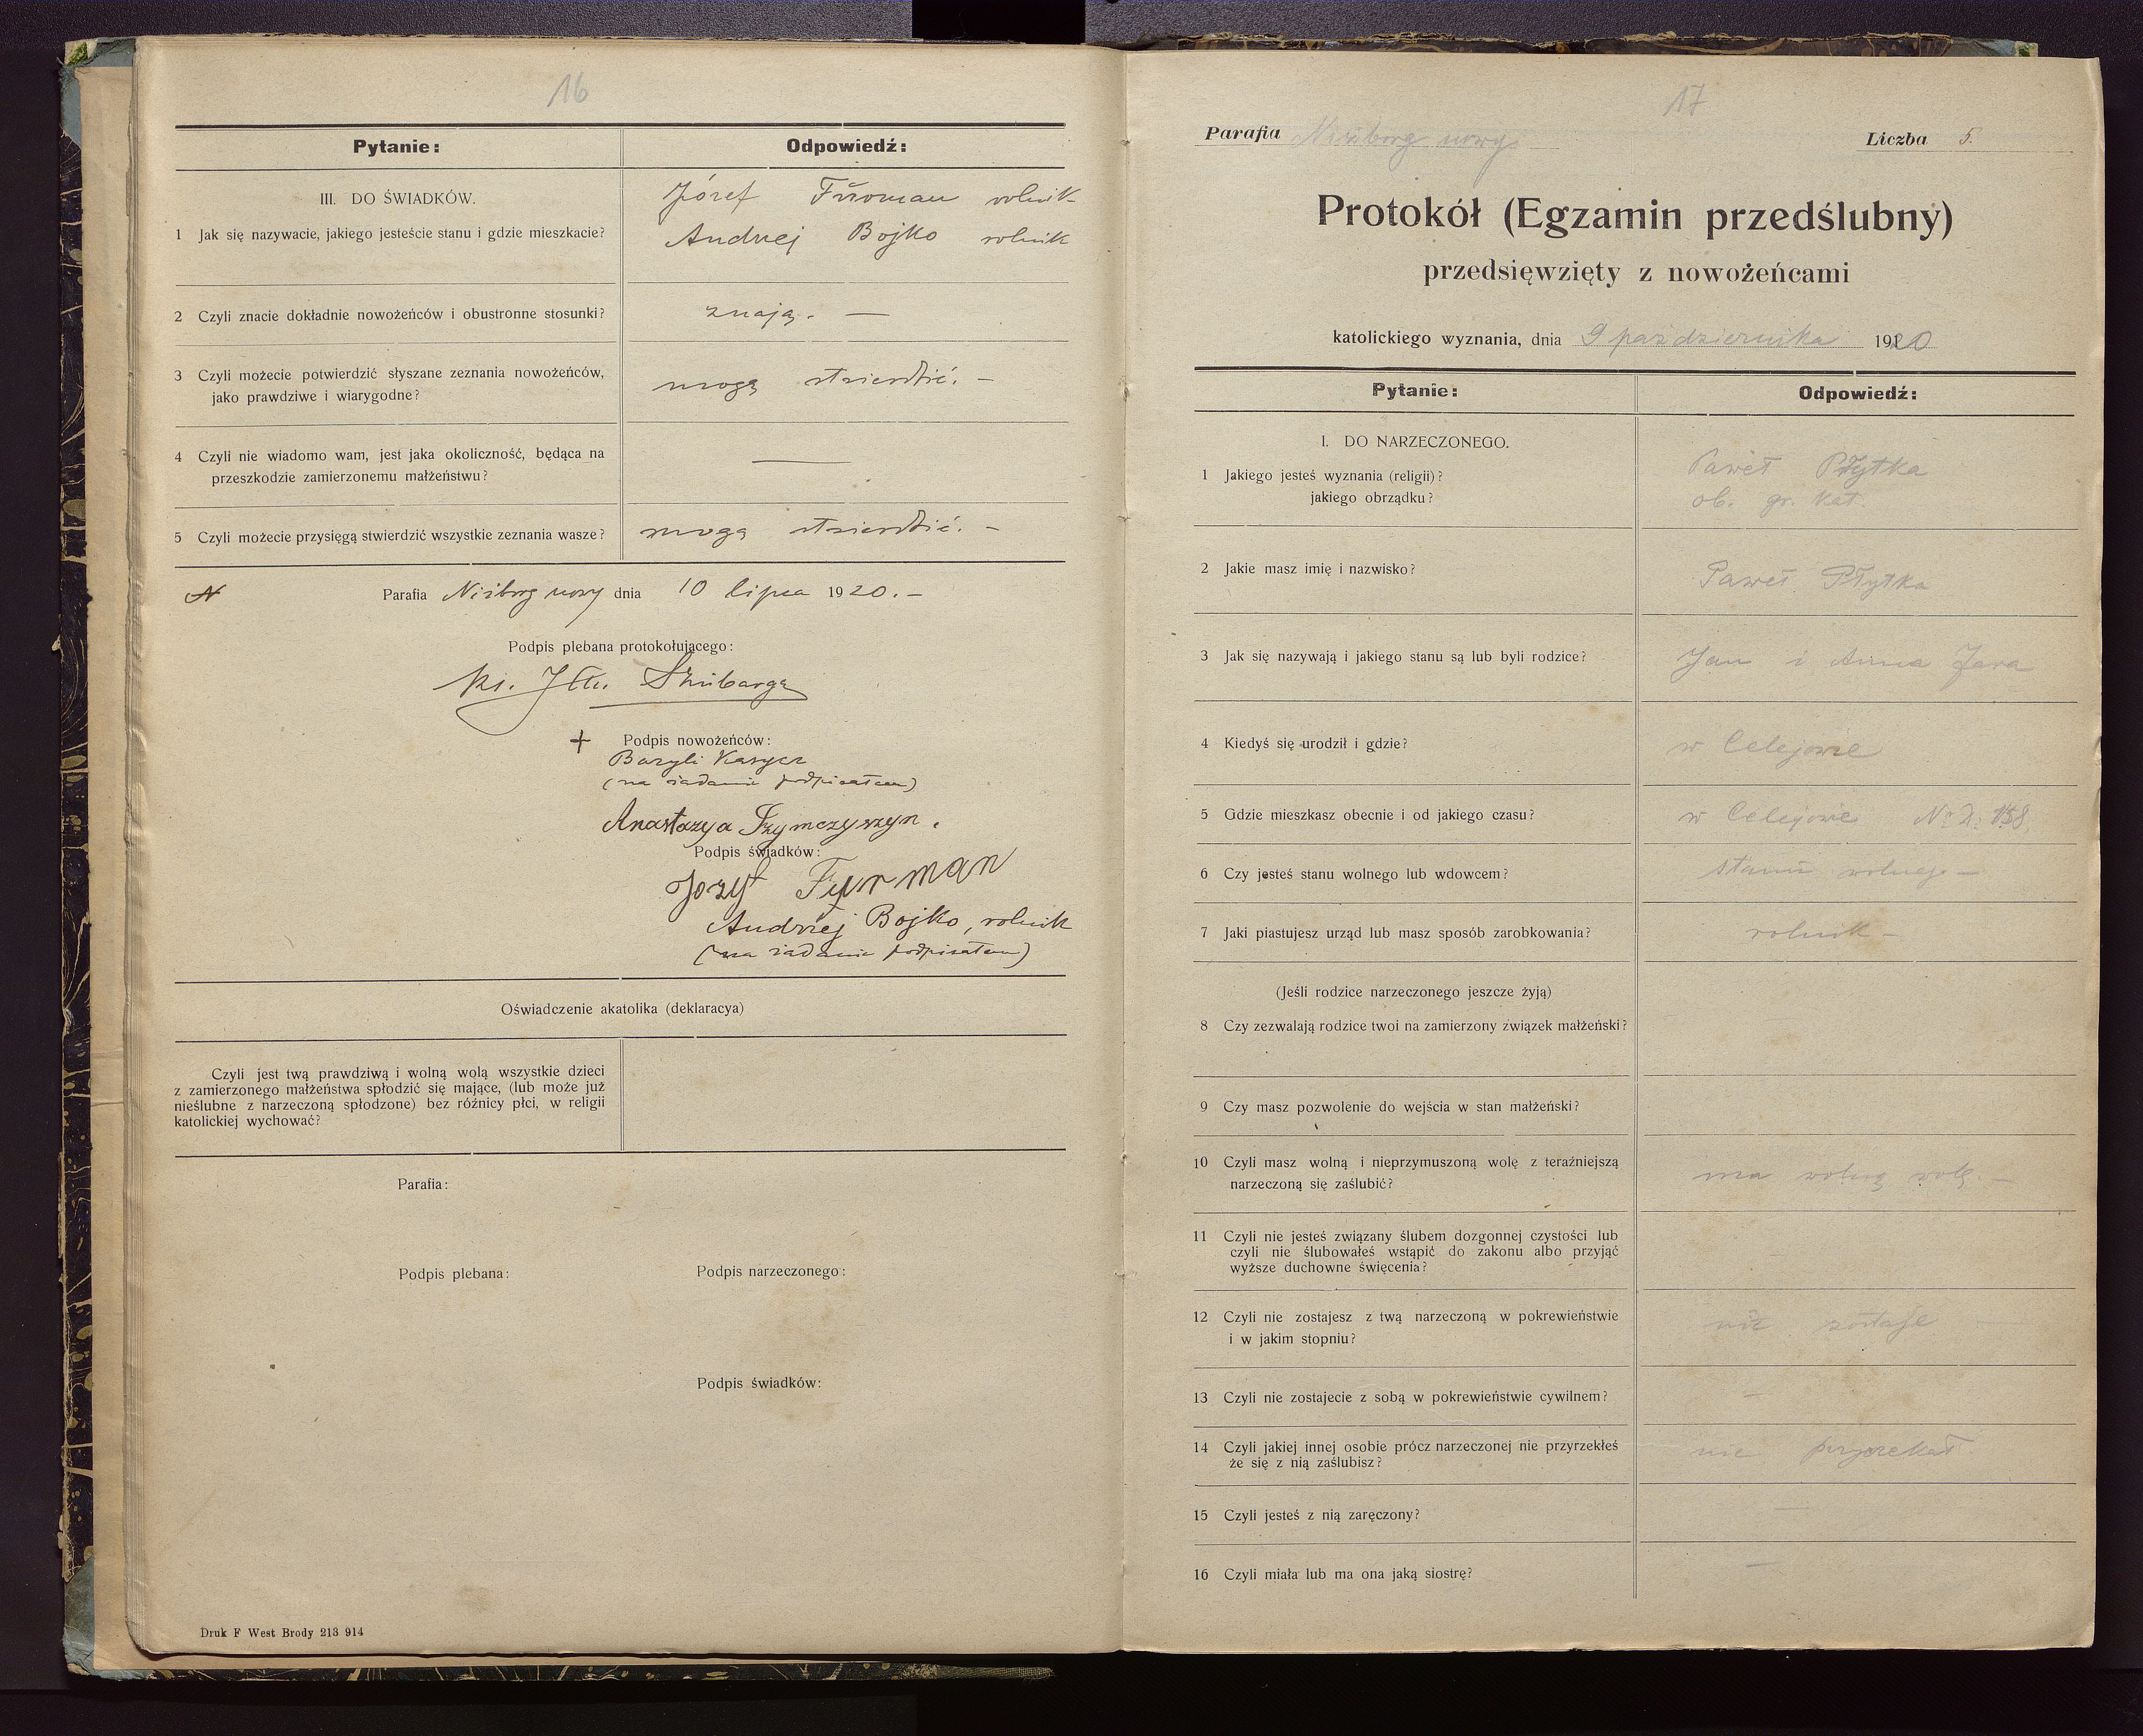 16
Pytanie:
Odpowiedź:
III. DO ŚWIADKÓW.
1 Jak się nazywacie, jakiego jesteście stanu i gdzie mieszkacie?
Józef Fűrman rolnik
Andrzej Bojko rolnik
2 Czyli znacie dokładnie nowożeńców i obustronne stosunki?
znają. —
3 Czyli możecie potwierdzić słyszane zeznania nowożeńców,
jako prawdziwe i wiarygodne?
mogą stwierdzić. —
4 Czyli nie wiadomo wam, jest jaka okoliczność, będąca na
przeszkodzie zamierzonemu małżeństwu?
—
5 Czyli możecie przysięgą stwierdzić wszystkie zeznania wasze?
mogą stwierdzić. —
N Parafia Niżborg nowy dnia 10 lipca 1920. —
Podpis plebana protokołującego:
ks. Skibarga
+ Podpis nowożeńców:
Bazyli Kasycz
(na żądanie podpisałem)
Anastazya Szymczyszyn.
Podpis świadków:
Józyf Furman
Andrzej Bojko, rolnik
(na żądanie podpisałem)
Oświadczenie akatolika (deklaracya)
Czyli jest twą prawdziwą i wolną wolą wszystkie dzieci
z zamierzonego małżeństwa spłodzić się mające, (lub może już
nieślubne z narzeczoną spłodzone) bez różnicy płci, w religii
katolickiej wychować?
Parafia:
Podpis plebana:
Podpis narzeczonego:
Podpis świadków:
Druk F West Brody 213 914
17
Parafia Niżborg nowy
Liczba 5.
Protokół (Egzamin przedślubny)
przedsięwzięty z nowożeńcami
katolickiego wyznania, dnia 9 października 1920
Pytanie:
Odpowiedź:
I. DO NARZECZONEGO.
1 Jakiego jesteś wyznania (religii)?
jakiego obrządku?
Paweł Płytka
ob. gr. kat.
2 Jakie masz imię i nazwisko?
Paweł Płytka
3 Jak się nazywają i jakiego stanu są lub byli rodzice?
Jan i Anna Jara
4 Kiedyś się urodził i gdzie?
w Celejowie
5 Gdzie mieszkasz obecnie i od jakiego czasu?
w Celejowie Nr D. 158.
6 Czy jesteś stanu wolnego lub wdowcem?
stanu wolnego —
7 Jaki piastujesz urząd lub masz sposób zarobkowania?
rolnik —
(Jeśli rodzice narzeczonego jeszcze żyją)
8 Czy zezwalają rodzice twoi na zamierzony związek małżeński?
9 Czy masz pozwolenie do wejścia w stan małżeński?
10 Czyli masz wolną i nieprzymuszoną wolę z teraźniejszą
narzeczoną się zaślubić?
ma wolną wolę. —
11 Czyli nie jesteś związany ślubem dozgonnej czystości lub
czyli nie ślubowałeś wstąpić do zakonu albo przyjąć
wyższe duchowne święcenia?
12 Czyli nie zostajesz z twą narzeczoną w pokrewieństwie
i w jakim stopniu?
nie zostaje
13 Czyli nie zostajecie z sobą w pokrewieństwie cywilnem?
—
14 Czyli jakiej innej osobie prócz narzeczonej nie przyrzekłeś
że się z nią zaślubisz?
nie przyrzekał
15 Czyli jesteś z nią zaręczony?
—
16 Czyli miała lub ma ona jaką siostrę?
—